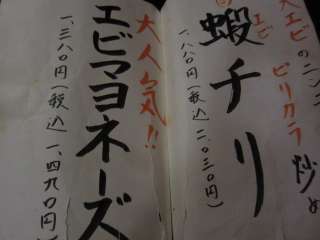 大エビのニンニ
ピリカラ炒め
エビ
蝦チリ
一、八八〇円(税込二、〇三〇円)
大人気!!
エビマヨネーズ
一、三八〇円(税込一、四九〇円)